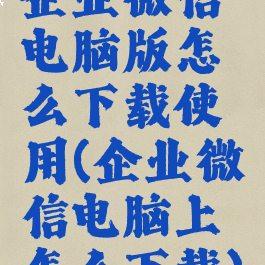 企业微信
电脑版怎
么下载使
用(企业微
信电脑上
怎么下载)